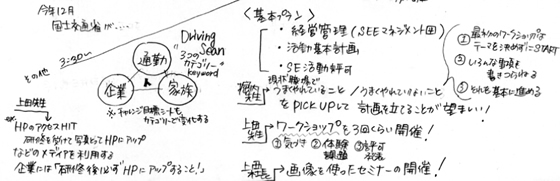 今年12月
国土交通省が……
3:30〜
その他
Driving
Sean
3つの
カテゴリー
keyword
通勤
企業
家族
※チャレンジ目標シートを
カテゴリーで変化する
上田先生
ex.
HPのアクセスHIT
研修を受けて写真とってHPにアップ
などのメディアを利用する
企業には「研修後必ずHPにアップすること!」
〈基本プラン〉
・経営管理(SEEマネジメント図)
・活動基本計画
・SE活動評可
現状職場で
うまくやれていること/うまくやれていないこと
をPICK UPして計画を立てることが望ましい!
上田先生→ワークショップを3回くらい開催!
①気づき ②体験 ③評可
上西社長→画像を使ったセミナーの開催!
①最初のワークショップは
テーマを決めずにSTART
②いろんな事項を
書きつらねる
③それを基本に進める